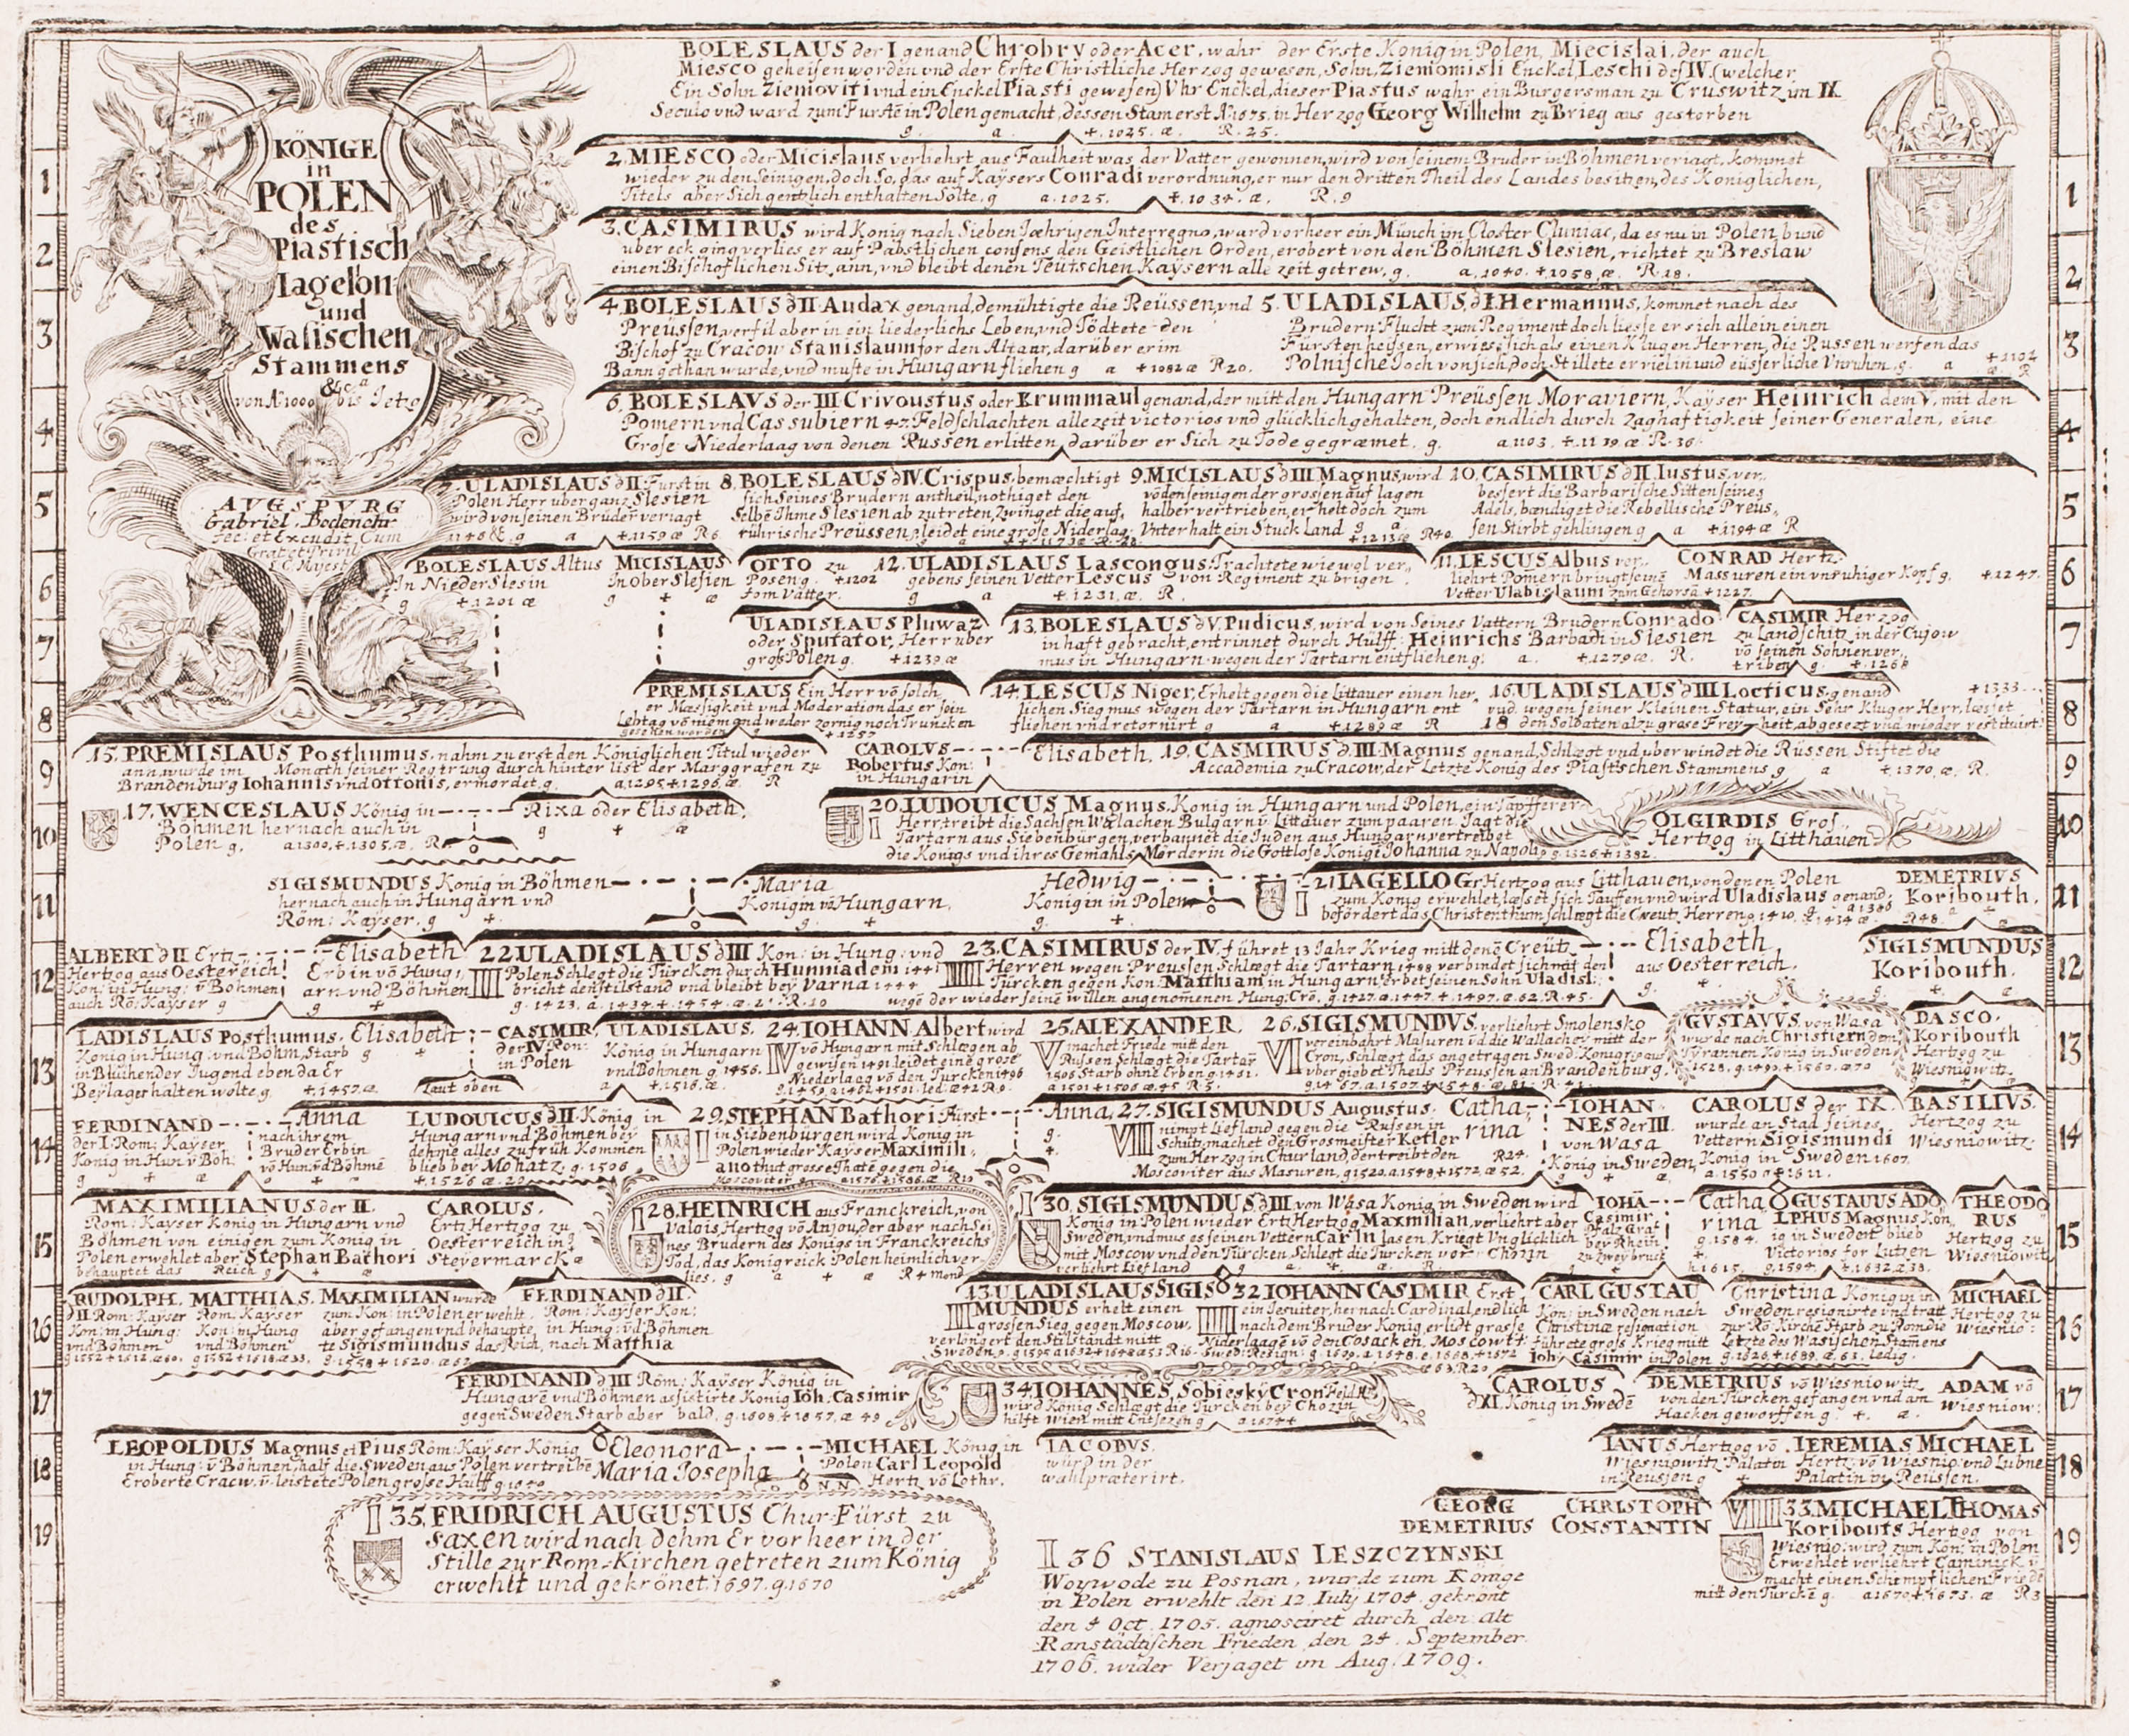 KÖNIGE
in
POLEN
des
Piastisch
Iagelon:
und
Wasischen
Stammens
&c.
von Aº 1000 bis Ietzo
AVGSPVRG
Gabriel Bodenehr
fec: et Excudit, Cum
Grat et Privil
S.C. Mayest
BOLESLAUS der I genand Chrobry oder Acer, wahr der Erste Konig in Polen, Miecislai, der auch
Miesco geheisen worden vnd der Erste Christliche Herzog gewesen, Sohn, Ziemomisli Enckel, Leschi des IV. (welcher
Ein Sohn Ziemoviti vnd ein Enckel Piasti gewesen) Vhr Enckel, dieser Piastus wahr ein Burgersman zu Cruswitz im IX
Seculo vnd ward zum Furstē in Polen gemacht, dessen Stam erst Aº 1675. in Herzog Georg Wilhelm zu Brieg aus gestorben
g. a. +. 1025. æ. R. 25.
1
2. MIESCO oder Micislaus verliehrt aus Faulheit was der Vatter gewonnen, wird von seinem Bruder in Böhmen veriagt, kommet
wieder zu den Seinigen, doch So, das auf Kaysers Conradi verordnung, er nur den dritten Theil des Landes besitzen, des Koniglichen,
Titels aber Sich gentzlich enthalten Solte. g a. 1025. +. 1034. æ. R. 9
1
2
3. CASIMIRUS wird Konig nach Sieben Jæhrigen Interregno, ward vorheer ein Münch im Closter Cluniac, da es nu in Polen bund
uber eck ging verlies er auf Päbstlichen consens den Geistlichen Orden, erobert von den Böhmen Slesien, richtet zu Breslaw
einen Bischoflichen Sitz ann, vnd bleibt denen Teutschen Kaysern alle zeit getrew. g. a. 1040. +1058. æ. R. 18.
2
3
4. BOLESLAUS d II Audax genand, demühtigte die Reüssen, vnd
Preüssen, verfil aber in ein liederlichs Leben, vnd Tödtete den
Bischof zu Cracow Stanislaum for den Altaar, darüber er im
Bann gethan wurde, vnd muste in Hungarn fliehen g a +1082 æ R 20.
5. ULADISLAUS, d I Hermannus, kommet nach des
Brudern Flucht zum Regiment doch liesse er sich allein einen
Fürsten heissen, erwiese sich als einen Klugen Herren, die Russen werfen das
Polnische Joch von sich, doch Stillete er viel in und eüsserliche Vnruhen. g. a +1102 æ. R
3
4
6. BOLESLAVS der III Crivoustus oder Krummaul genand, der mitt den Hungarn Preüssen Moraviern, Kayser Heinrich dem V, mit den
Pomern vnd Cassubiern 47. Feldschlachten allezeit victorios vnd glücklich gehalten, doch endlich durch Zaghaftigkeit seiner Generalen, eine
Grose Niederlaag von denen Russen erlitten, darüber er Sich zu Tode gegræmet. g. a 1103. +. 1139. æ R. 36.
4
5
7. ULADISLAUS d II Furst in
Polen Herr uber ganz Slesien
wird von seinen Brüder veriagt
1146 &. g a +1159 æ R 6
8. BOLESLAUS d IV. Crispus, bemæchtigt
sich Seines Brudern antheil, nothiget den
Selbē Ihme Slesien ab zutreten, zwinget die auf,
rührische Preüssen, leidet eine grose Niderlag.
+1173 æ R. 28
9. MICISLAUS d III Magnus, wird
vō den seinigen der grossen auf lagen
halber vertrieben, er helt doch zum
Vnterhalt ein Stuck Land g a +1213 æ R 40
10. CASIMIRUS d II. Iustus, ver,
bessert die Barbarische Sitten seines
Adels, bændiget die Rebellische Preus,
sen Stirbt gehlingen g a +1194 æ R
5
6
BOLESLAUS Altus
In Nieder Slesin
g +1201 æ
MICISLAUS
In Ober Slesien
g + æ
OTTO zu
Posen g. +1202
fom Vatter.
12. ULADISLAUS Lascongus, Trachtete wie wol ver,
gebens seinen Vetter Lescus von Regiment zu brigen
g a +1231. æ. R.
11. LESCUS Albus ver,
liehrt Pomern bringt seinē
Vetter Uladislaum zum Gehorsā +1227
CONRAD Hertz:
Massuren ein vnruhiger Kopf g. +1247.
6
7
ULADISLAUS Pluwaz
oder Sputator, Herr uber
gros Polen g. +1239 æ
13. BOLESLAUS d V. Pudicus, wird von Seines Vattern Brudern Conrado
in haft gebracht, entrinnet durch Hülff Heinrichs Barbati in Slesien
mus in Hungarn wegen der Tartarn entfliehen g: a. +1279 æ. R.
CASIMIR Herzog
zu Landschitz in der Cujow
vō seinen Sohnen ver,
triben g. +1268
7
8
PREMISLAUS Ein Herr vō solch
er Mæssigkeit vnd Moderation das er sein
Lebtag vō niemand weder zornig noch Truncken
gesehen worden g +1257
14. LESCUS Niger, Erhelt gegen die Littauer einen her,
lichen Sieg mus wegen der Tartarn in Hungarn ent
fliehen vnd retornirt g a +1289 æ R
16. ULADISLAUS d III Locticus genand +1333
vnd wegen seiner Kleinen Statur, ein Sehr Kluger Herr, lasset
18 den Soldaten alzu grose Frey-heit, abgesezt vnd wieder restituirt
8
9
15. PREMISLAUS Posthumus, nahm zu erst den Königlichen Titul wieder
ann, wurde im Monath seiner Regirung durch hinter list der Marggrafen zu
Brandenburg Iohannis vnd Ottonis, ermordet. g. a. 1295 +1296. æ. R
CAROLVS
Robertus Kon:
in Hungarin
Elisabeth.
19. CASMIRUS d III Magnus genand, Schlægt vnd uber windet die Rüssen, Stiftet die
Accademia zu Cracow, der Letzte König des Piastischen Stammens g a +. 1370. æ. R.
9
10
17. WENCESLAUS König in
Böhmen hernach auch in
Polen g. a 1300. +. 1305. æ. R
Rixa oder Elisabeth.
g + æ
20. LUDOUICUS Magnus, Konig in Hungarn und Polen, ein Tapfferer
Herr treibt die Sachsen Walachen Bulgarn v̄ Littauer zum paaren Jagt die
Tartarn aus Siebenbürgen, verbannet die Juden aus Hungarn vertreibet
die Königs vnd ihres Gemahls Mörderin die Gottlose Konigī Johanna zu Napolis g. 1326 +1382.
OLGIRDIS Gros
Hertzog in Litthauen
10
11
SIGISMUNDUS Konig in Böhmen
hernach auch in Hungarn vnd
Röm: Kayser. g +
Maria
Konigin vō Hungarn.
g. +
Hedwig
Konigin in Polen
g. +
21 IAGELLO Gr Hertzog aus Litthauen, von denen Polen
zum König erwehlet, læset sich Tauffen vnd wird Uladislaus genand,
befördert das Christenthum schlægt die Creutz Herren g 1410. g. a 1386 +1434 æ R 48.
DEMETRIVS
Koribouth.
11
12
ALBERT d II Ertz
Hertzog aus Oestereich
Kon: in Hung: v̄ Bohmen
auch Rō: Kayser g +
Elisabeth
Erbin vō Hung,
arn vnd Böhmen
g +
22 ULADISLAUS d III Kon: in Hung: vnd
IIII Polen Schlegt die Türcken durch Hunniadem 1441
bricht den stilstand vnd bleibt bey Varna 1444
g. 1423. a. 1434. +. 1454. æ. 21. R. 10
23. CASIMIRUS der IV. führet 13 Jahr Krieg mitt denē Creütz
Herren wegen Preussen Schlægt die Tartarn 1488 verbindet sich mit den
Türcken gegen Kon: Matthiam in Hungarn erbet seinen Sohn Uladisl:
wege der wieder seinē willen angenomenen Hung: Crō. g. 1427. a. 1447. +. 1492. æ. 62. R. 45.
Elisabeth
aus Oesterreich.
g. +
SIGISMUNDUS
Koribouth.
12
13
LADISLAUS Posthumus.
König in Hung. vnd Böhm, Starb
in Bluhender Jugend eben da Er
Beylager halten wolte. g +1457. æ
Elisabeth
g +
CASIMIR
der IV Kon:
in Polen
Laut oben
ULADISLAUS.
König in Hungarn
vnd Bohmen g 1456.
a +1516. æ.
24. IOHANN Albert wird
IV vō Hungarn mit Schlægen ab
gewisen 1491. leidet eine grose
Niederlag vō den Turcken 1496
g. 1459 a 1492 +1501. led. æ 42 R 9.
25. ALEXANDER.
V machet Friede mitt den
Russen, Schlægt die Tartar
1506 Starb ohne Erben g. 1461.
a 1501 +1506 æ. 45 R. 5.
26. SIGISMUNDVS. verliehrt Smolensko
VII vereinbahrt Masuren v̄d die Wallachey mitt der
Cron, Schlægt das angetragen Swed: Konigr: aus
vbergiebet Theils Preussen an Brandenburg.
g. 1467. a. 1507 +1548. æ. 81. R. 41.
GUSTAVVS. von Wasa
wurde nach Christiern dem
Tyrannen König in Sweden
1528. g. 1490. +1560. æ 70
DASCO.
Koribouth
Hertzog zu
Wiesniowitz.
13
14
FERDINAND
der I. Rom: Kayser
König in Hun v̄ Böh:
g +
Anna
nach ihrem
Bruder Erbin
vō Hun v̄d Böhmē
LUDOUICUS d II. König in
Hungarn vnd Böhmen bey
dehme alles zu früh Kommen
blieb bey Mohatz. g. 1506
+. 1526 æ. 20
29. STEPHAN Bathori Fürst
in Siebenburgen wird König in
Polen wieder Kayser Maximili,
ano thut grosse Thatē gegen die
Moscoviter g a 1576 +1586. æ R 10
Anna,
g.
+
27. SIGISMUNDUS Augustus.
VIII nimpt Liefland gegen die Russen in
Schutz, machet den Grosmeister Ketler
zum Herzog in Churland, der treibt den R 24.
Moscoviter aus Masuren, g 1520. a 1548 +1572 æ 52.
Catha
rina
IOHAN
NES der III.
von Wasa
König in Sweden
CAROLUS der IX.
wurde an Stad seines
Vettern Sigismundi
Konig in Sweden 1607.
a. 1550 +1611.
BASILIVS.
Hertzog zu
Wiesniowitz.
14
15
MAXIMILIANUS der II.
Rom: Kayser König in Hungarn vnd
Böhmen von einigen zum König in
Polen erwehlet aber Stephan Bathori
behauptet das Reich g. +
CAROLUS.
Ertz Hertzog zu
Oesterreich in
Steyermarck
28. HEINRICH aus Franckreich, von
Valois Hertzog vō Anjou, der aber nach Sei
nes Brudern des Königs in Franckreichs
Tod, das Konigreick Polen heimlich ver
lies. g a + æ R 4 mond
30. SIGISMUNDUS d III von Wasa Konig in Sweden wird
König in Polen wieder Ertz Hertzog Maxmilian, verliehrt aber
Sweden, vnd mus es seinen Vettern Carln lasen, Kriegt Vnglicklich
mit Moscow vnd den Türcken, Schlegt die Turcken vor Chozin
verliehrt Liefland g. a. +. æ. R.
IOHĀ
Casimir
Pfalz Graf
bey Rhein
zu zweybruck
Catha
rina
g. 1584.
+.
GUSTAUUS ADO
LPHUS Magnus Kön
ig in Swedent blieb
Victorios for Lutzen
g. 1594. +. 1632. æ. 38.
THEODO
RUS
Hertzog zu
Wiesniowit
15
16
RUDOLPH.
d II Rom: Kayser
Kon: in Hung:
vnd Böhmen
g 1552 +1612. æ 60.
MATTHIAS.
Rom. Kayser
Kon: in Hung
vnd Böhmen
MAXIMILIAN wurde
zum Kon: in Polen erwehlt.
aber gefangen vnd behaupte,
te Sigismundus das Reich,
g. 1558 +1620. æ 62
FERDINAND d II
Rom: Kayser Kon:
in Hung: v̄d Böhmen
nach Matthia
13. ULADISLAUS SIGIS
MUNDUS erhelt einen
grossen Sieg gegen Moscow,
verlöngert den Stilstandt mitt
Sweden. g. 1595 a 1632 +1648 æ 53 R 16
32 IOHANN CASIMIR Erst
ein Iesuiter, hernach Cardinal endlich
nach dem Bruder König, erlidt grosse
Niderlaagē vō den Cosacken, Moscowit
Swed: Resign:
CARL GUSTAU
Kön: in Sweden nach
Christinæ resignation
führete gros Krieg mitt
Ioh: Casimir in Polen
Christina Königin in
Sweden resignirte vnd tratt
zur Rō: Kirche Starb zu Rom die
Letzte des Wasischen Stamens
g. 1626 +1689. æ. 63. ledig.
MICHAEL
Hertzog zu
Wiesnio:
16
17
FERDINAND d III Röm: Kayser König in
Hungarē vnd Böhmen assistirte Konig Ioh. Casimir
gegen Sweden Starb aber bald. g. 1608. +1657. æ 49
34 IOHANNES, Sobiesky Cron Feld H:
wird König Schlægt die Türcken bey Chozin
hilft Wien mitt Entsezen g a 1674 +
CAROLUS
d XI. König in Swedē
DEMETRIUS vō Wiesniowitz
von den Türcken gefangen vnd am
Hacken geworffen g. +. æ.
ADAM vō
Wiesniow:
17
18
LEOPOLDUS Magnus et Pius Röm: Kayser König
in Hung: v̄ Böhmen, half die Sweden aus Polen vertreibē
Eroberte Cracw. v̄ leistete Polen grosse Hülff g 1640
Eleonora
Maria Josepha
MICHAEL König in
Polen Carl Leopold
Hertz. vō Lothr.
IACOBVS.
würd in der
wahl præterirt.
IANUS Hertzog vō
Wiesniowitz Palatin
in Reusjen g
IEREMIAS MICHAEL
Hertz: vō Wiesnio. vnd Lubne
Palatin in Reüssen.
18
19
35. FRIDRICH AUGUSTUS Chur-Fürst zu
Saxen wird nach dehm Er vorheer in der
Stille zur Rom-Kirchen getreten zum König
erwehlt und gekrönet 1697. g. 1670
GEORG
DEMETRIUS
CHRISTOPH
CONSTANTIN
VIIII 33. MICHAEL THOMAS
Koributs Hertzog von
Wiesnio: wird zum Kön: in Polen
Erwehlet verliehrt Caminick v̄
macht einen Schimpflichen Friedē
mitt den Türckē g. a 1670 +. 1673. æ R 3
19
36 STANISLAUS LESZCZYNSKI
Woywode zu Posnan, wurde zum Könige
in Polen erwehlt den 12. Iuly 1704. gekrönt
den 4 Oct. 1705. agnosciret durch den Alt
Ranstädtischen Frieden den 24. September
1706. wider Verjaget im Aug. 1709.